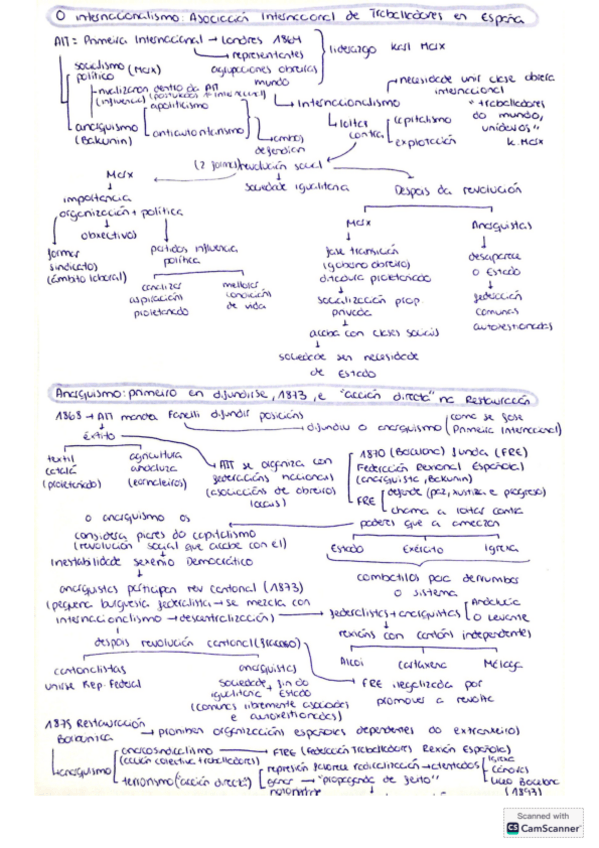 O internacionalismo: Asociación Internacional de Traballadores en España
AIT = Primeira Internacional → Londres 1864
liderazgo Karl Marx
representantes
agrupacións obreiras
mundo
socialismo (Marx)
político
rivalizaron dentro da AIT
apoliticismo
anarquismo
(Bakunin)
antiautoritarismo
Internacionalismo
necesidade unir clase obreira
internacional
"traballadores
do mundo,
unídevos"
K. Marx
loitar
contra
capitalismo
explotación
ambos
defendían
(2 formas) revolución social
sociedade igualitaria
Marx
importancia
organización + política
obxectivos
formar
sindicatos
(ámbito laboral)
partidos influencia
política
canalizar
aspiracións
proletariado
mellorar
condicións
de vida
Despois da revolución
Marx
fase transición
(goberno obreiro)
ditadura proletariado
socialización prop
privada
acaba con clases sociais
sociedade sen necesidade
de Estado
Anarquistas
desaparece
o Estado
federación
comunas
autoxestionadas
Anarquismo: primeiro en difundirse, 1873, e "acción directa" na Restauración
1868 → AIT manda Fanelli difundir posicións
difundiu o anarquismo (como se fose
Primeira Internacional)
éxito
textil
catalá
(proletariado)
agricultura
andaluza
(xornaleiros)
AIT se organiza con
federacións nacionais
(asociacións de obreiros
locais)
1870 (Barcelona) funda (FRE)
Federación Rexional Española)
(anarquista, Bakunin)
FRE
defende (paz, xustiza e progreso)
chama a loitar contra
poderes que a ameazan
Estado
Exército
Igrexa
combatilos para derrumbar
o sistema
o anarquismo os
considera piares do capitalismo
(revolución social que acabe con el)
Inestabilidade sexenio Democrático
anarquistas participan rev cantonal (1873)
(pequena burguesía federalista → se mezcla con
internacionalismo → descentralización)
federalistas + anarquistas
Andalucía
o levante
rexións con cantóns independentes
Alcoi
Cartaxena
Málaga
despois revolución cantonal (fracaso)
cantonalistas
unirse Rep. Federal
anarquistas
sociedade
igualitaria
fin do
Estado
(comunas libremente asociadas
e autoxestionadas)
FRE ilegalizada por
promover a revolta
1875 Restauración
Borbónica
prohiben organizacións españolas dependentes do extranxeiro
anarquismo
anarcosindicalismo
(acción colectiva traballadores)
FTRE (Federación Traballadores Rexión Española)
terrorismo ("acción directa")
represión favorece radicalización → atentados
Igrexa
Cánovas
Liceo Barcelona
(1893)
"propaganda do feito"
Scanned with
CS CamScanner